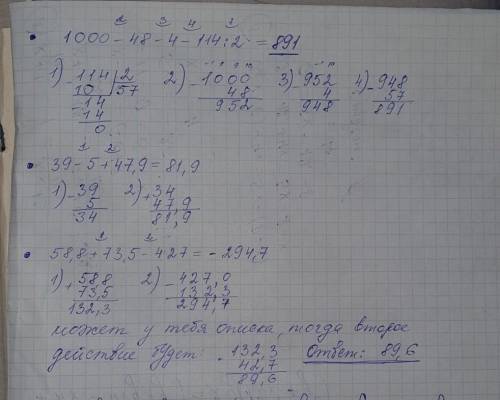 2 3 4 1
1000 - 48 - 4 - 114 : 2 = 891
1) - 114 | 2 2) - 1000 3) - 952 4) - 948
10 | 57 48 4 57
- 14 952 948 891
14
0
1 2
39 - 5 + 47,9 = 81,9
1) - 39 2) + 34
5 47,9
34 81,9
1 2
58,8 + 73,5 - 427 = - 294,7
1) + 58,8 2) - 427,0
73,5 132,3
132,3 294,7
может у тебя описка, тогда второе
действие будет - 132,3 Ответ: 89,6
42,7
89,6